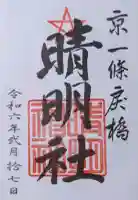 京一條戻橋
晴明社
令和六年弐月拾七日